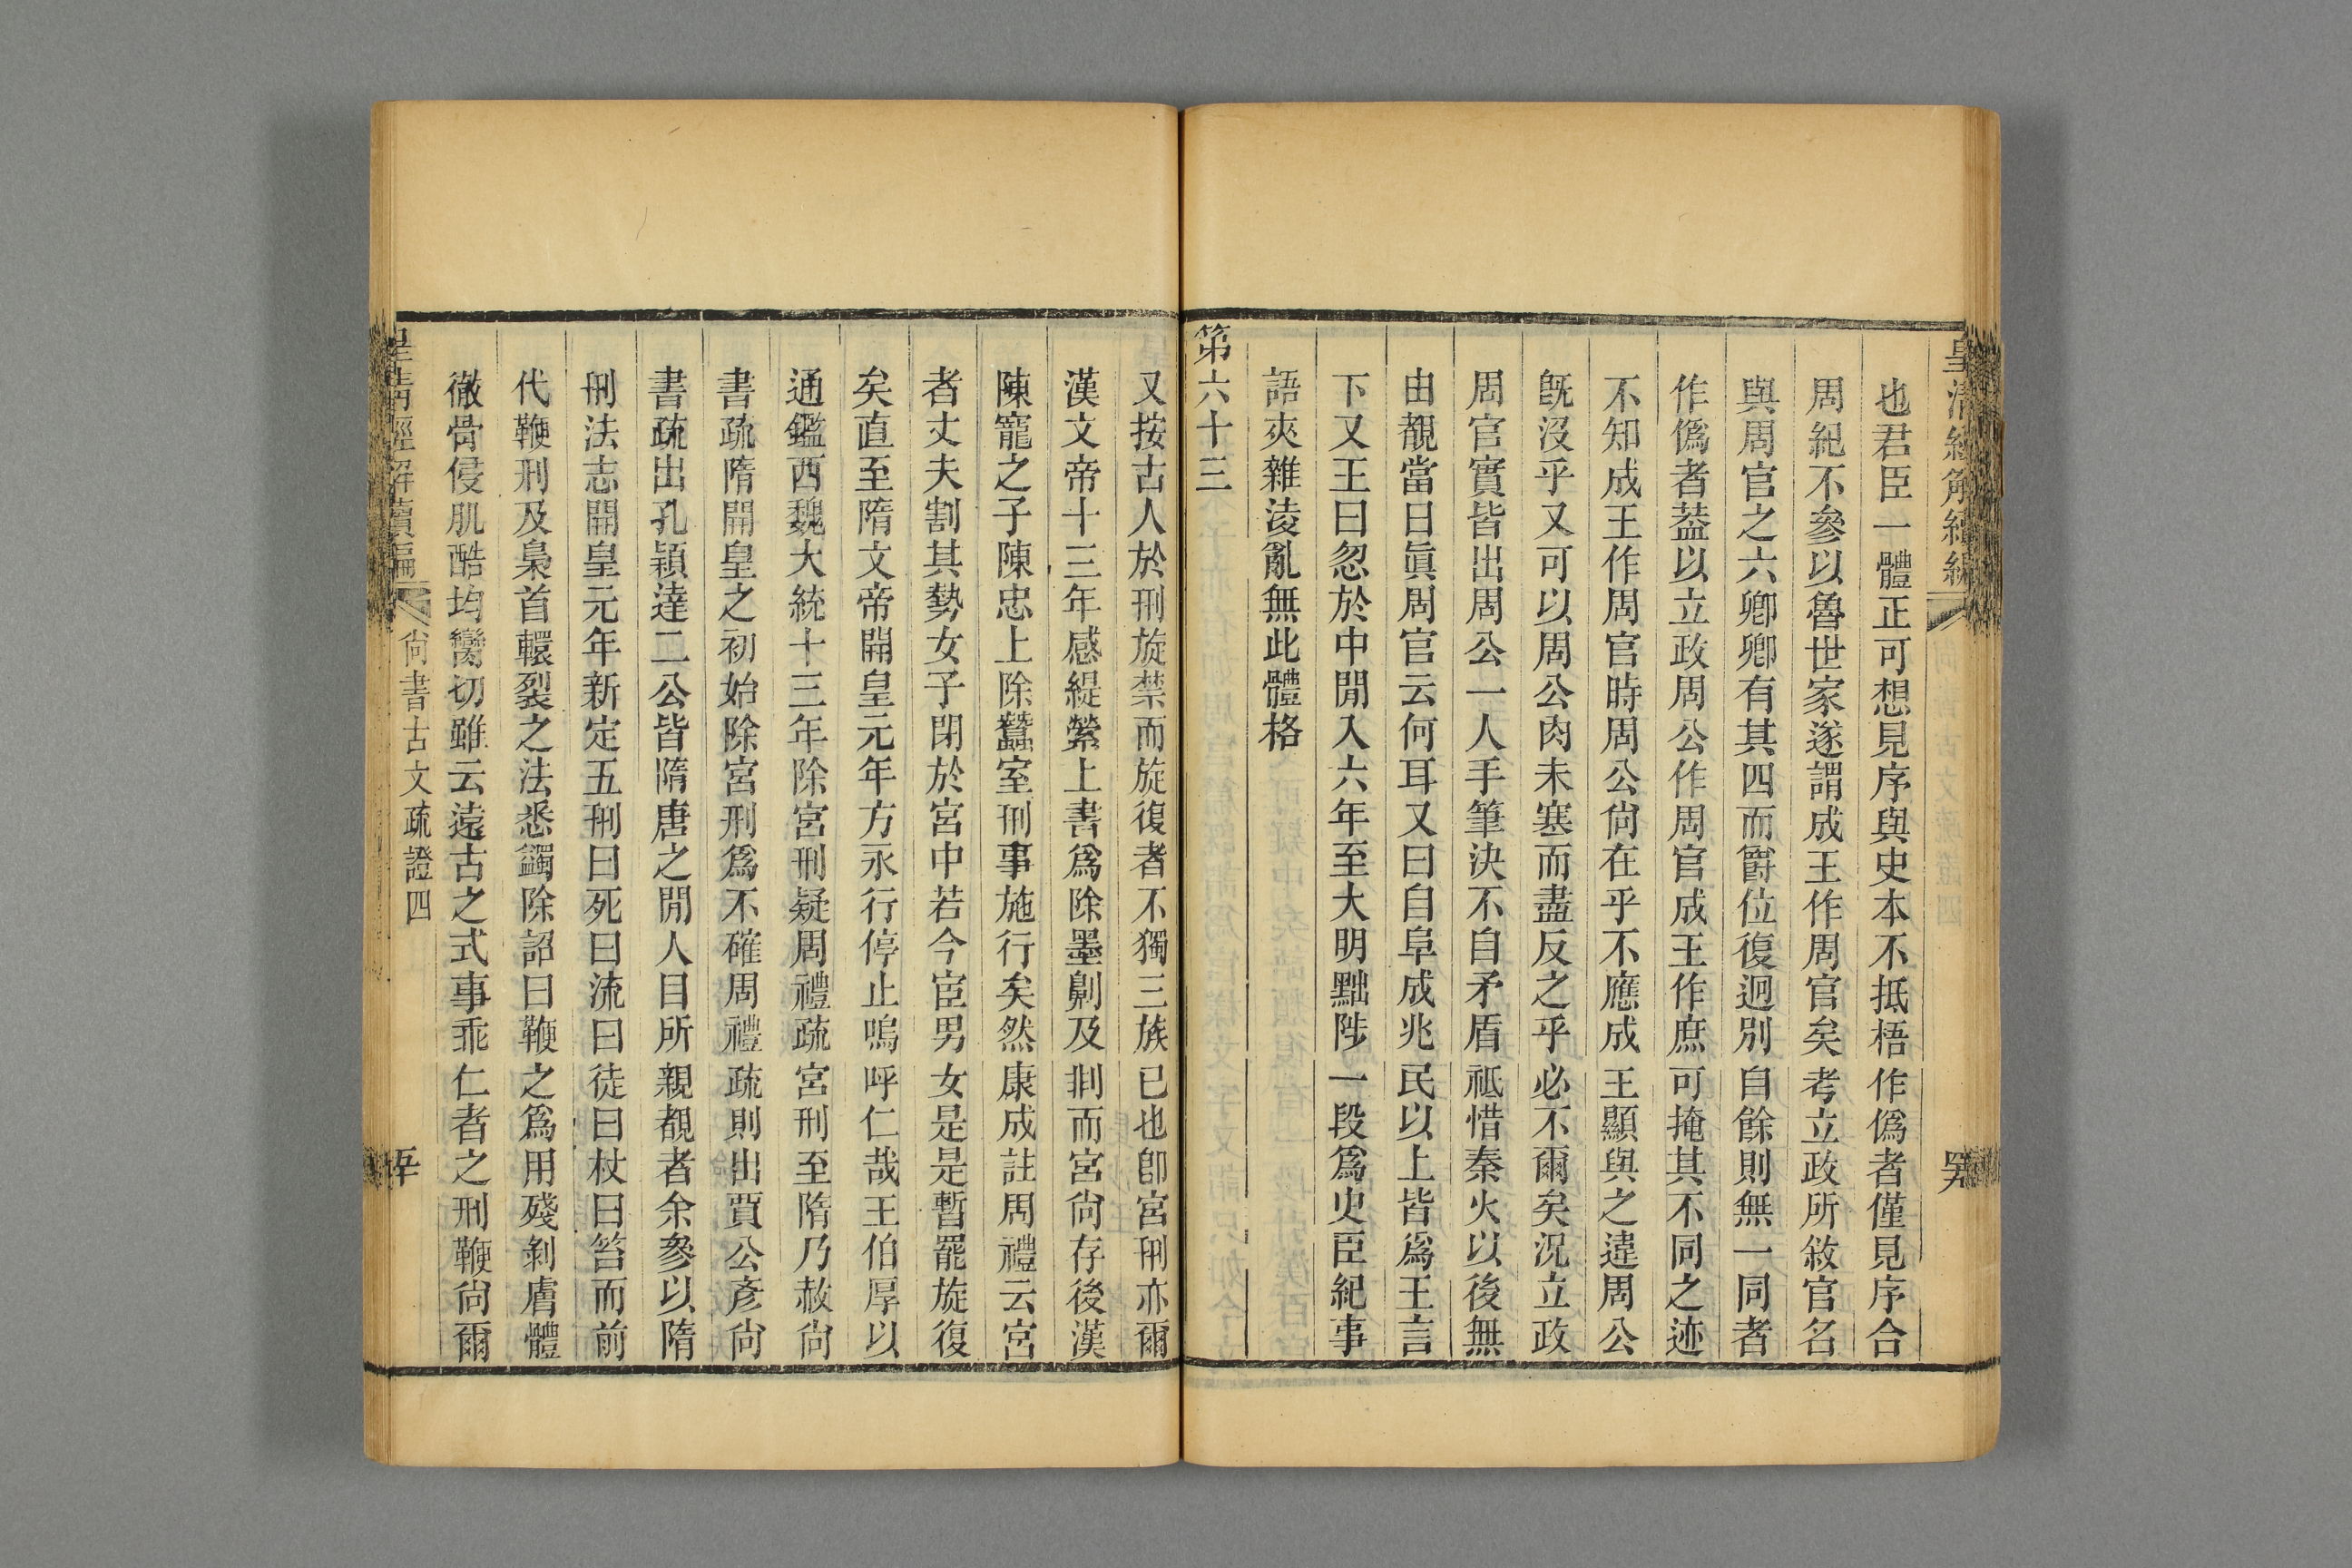 皇清經解續編
也君臣一體正可想見序與史本不抵梧作僞者僅見序合
周紀不參以魯世家遂謂成王作周官矣考立政所敘官名
與周官之六卿卿有其四而爵位復迥別自餘則無一同者
作僞者葢以立政周公作周官成王作庶可掩其不同之迹
不知成王作周官時周公尙在乎不應成王顯與之違周公
旣沒乎又可以周公肉未寒而盡反之乎必不爾矣況立政
周官實皆出周公一人手筆決不自矛盾祗惜秦火以後無
由覩當日眞周官云何耳又曰自阜成兆民以上皆爲王言
下又王曰忽於中閒入六年至大明黜陟一段爲史臣紀事
語夾雜淩亂無此體格
第六十三
又按古人於刑旋禁而旋復者不獨三族已也卽宮刑亦爾
漢文帝十三年感緹縈上書爲除墨劓及剕而宮尙存後漢
陳寵之子陳忠上除蠶室刑事施行矣然康成註周禮云宮
者丈夫割其勢女子閉於宮中若今宦男女是是暫罷旋復
矣直至隋文帝開皇元年方永行停止嗚呼仁哉王伯厚以
通鑑西魏大統十三年除宮刑疑周禮疏宮刑至隋乃赦尙
書疏隋開皇之初始除宮刑爲不確周禮疏則出賈公彥尙
書疏出孔穎達二公皆隋唐之閒人目所親覩者余參以隋
刑法志開皇元年新定五刑曰死曰流曰徒曰杖曰笞而前
代鞭刑及梟首轘裂之法悉蠲除詔曰鞭之爲用殘剝膚體
徹骨侵肌酷均臠切雖云遠古之式事乖仁者之刑鞭尙爾
皇淸經解續編
尙書古文疏證四